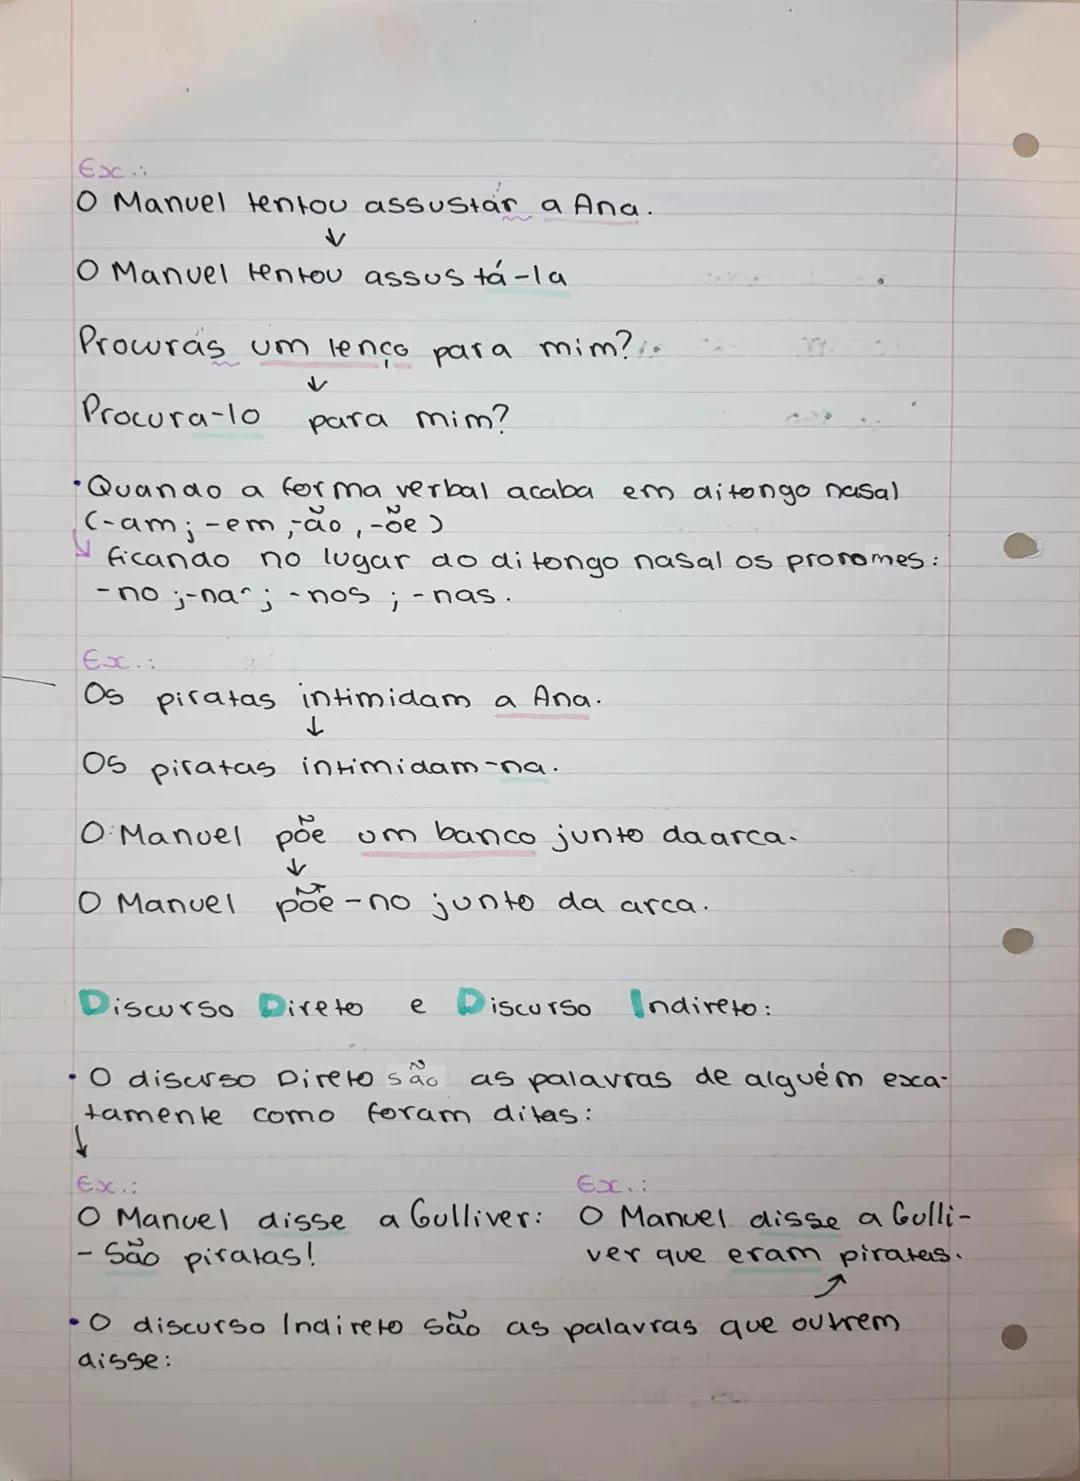 Ex.:
O Manuel tentou assustar a Ana.
O Manuel tentou assustá-la
Procuras um lenço para mim?
Procura-lo para mim?
•Quando a forma verbal acaba em ditongo nasal
(-am; -em, -ão, -õe)
ficando no lugar do ditongo nasal os pronomes:
-no ; -na ; -nos ; -nas.
Ex.:
Os piratas intimidam a Ana.
Os piratas intimidam-na.
O Manuel põe um banco junto da arca.
O Manuel põe-no junto da arca.
Discurso Direto e Discurso Indireto:
• O discurso Direto são as palavras de alguém exa-
tamente como foram ditas:
Ex.:
O Manuel disse a Gulliver:
- São piratas!
Ex.:
O Manuel disse a Gulli-
ver que eram piratas.
• O discurso Indireto são as palavras que outrem
disse: